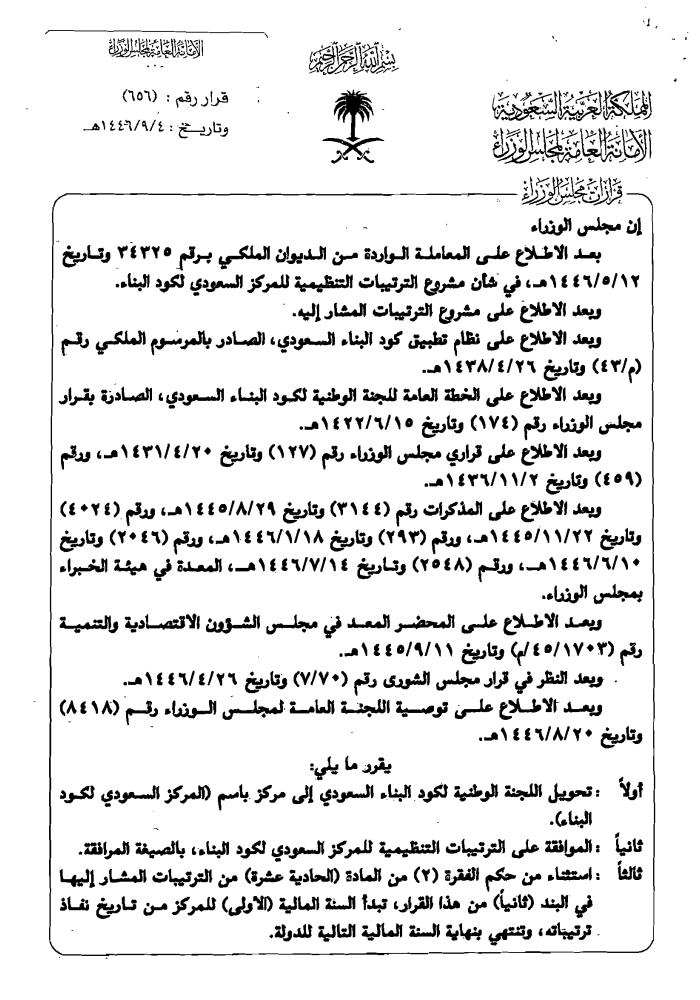 الأمانة العامة لمجلس الوزراء
بسم الله الرحمن الرحيم
المملكة العربية السعودية
الأمانة العامة لمجلس الوزراء
قرار رقم : (٦٥٦)
وتاريخ : ١٤٤٦/٩/٤هـ
قرارات مجلس الوزراء
إن مجلس الوزراء
بعد الاطلاع على المعاملة الواردة من الديوان الملكي برقم ٣٤٣٢٥ وتاريخ
١٤٤٦/٥/١٢هـ، في شأن مشروع الترتيبات التنظيمية للمركز السعودي لكود البناء.
وبعد الاطلاع على مشروع الترتيبات المشار إليه.
وبعد الاطلاع على نظام تطبيق كود البناء السعودي، الصادر بالمرسوم الملكي رقم
(م/٤٣) وتاريخ ١٤٣٨/٤/٢٦هـ.
وبعد الاطلاع على الخطة العامة للجنة الوطنية لكود البناء السعودي، الصادرة بقرار
مجلس الوزراء رقم (١٧٤) وتاريخ ١٤٢٢/٦/١٥هـ.
وبعد الاطلاع على قراري مجلس الوزراء رقم (١٢٧) وتاريخ ١٤٣١/٤/٢٠هـ، ورقم
(٤٥٩) وتاريخ ١٤٣٦/١١/٢هـ.
وبعد الاطلاع على المذكرات رقم (٣١٤٤) وتاريخ ١٤٤٥/٨/٢٩هـ، ورقم (٤٠٢٤)
وتاريخ ١٤٤٥/١١/٢٢هـ، ورقم (٢٩٣) وتاريخ ١٤٤٦/١/١٨هـ، ورقم (٢٠٤٦) وتاريخ
١٤٤٦/٦/١٠هـ، ورقم (٢٥٤٨) وتاريخ ١٤٤٦/٧/١٤هـ، المعدة في هيئة الخبراء
بمجلس الوزراء.
وبعد الاطلاع على المحضر المعد في مجلس الشؤون الاقتصادية والتنمية
رقم (٤٥/١٧٠٣/م) وتاريخ ١٤٤٥/٩/١١هـ.
وبعد النظر في قرار مجلس الشورى رقم (٧/٧٠) وتاريخ ١٤٤٦/٤/٢٦هـ.
وبعد الاطلاع على توصية اللجنة العامة لمجلس الوزراء رقم (٨٤١٨)
وتاريخ ١٤٤٦/٨/٢٠هـ.
يقرر ما يلي:
أولاً : تحويل اللجنة الوطنية لكود البناء السعودي إلى مركز باسم (المركز السعودي لكود
البناء).
ثانياً : الموافقة على الترتيبات التنظيمية للمركز السعودي لكود البناء، بالصيغة المرافقة.
ثالثاً : استثناء من حكم الفقرة (٢) من المادة (الحادية عشرة) من الترتيبات المشار إليها
في البند (ثانياً) من هذا القرار، تبدأ السنة المالية (الأولى) للمركز من تاريخ نفاذ
ترتيباته، وتنتهي بنهاية السنة المالية التالية للدولة.